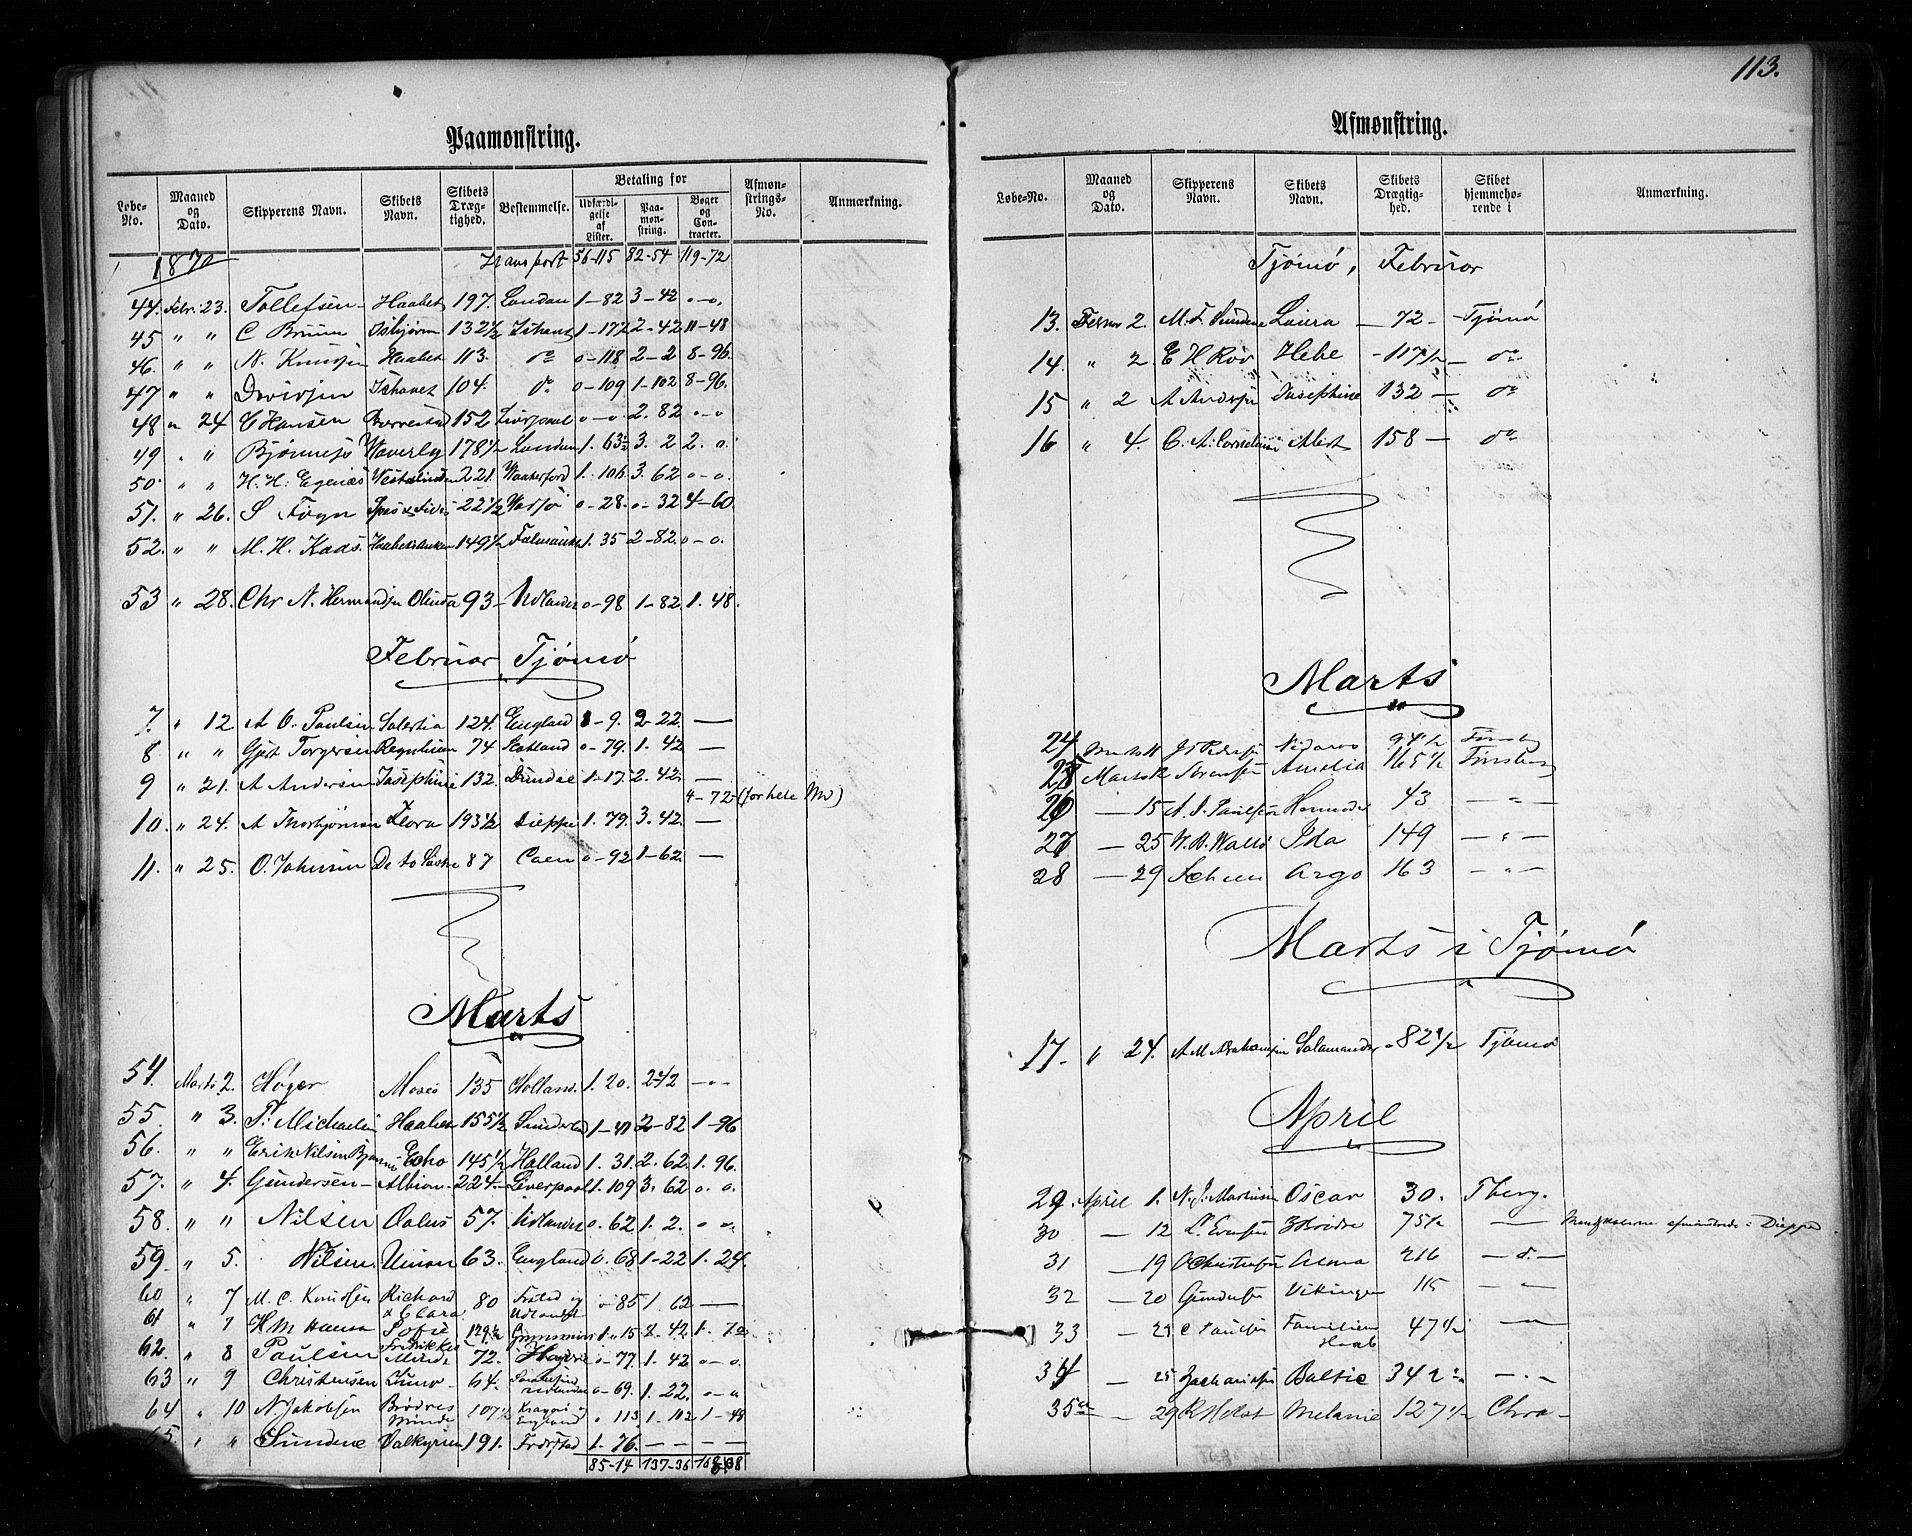 113.
Paamønstring.
Løbe-No. Maaned og Dato. Skipperens Navn. Skibets Navn. Skibets Drægtighed. Bestemmelse. Betaling for Udfærdigelse af Lister. Paamønstring. Bøger og Contracter. Afmønstrings-No. Anmærkning.
1870 Transport 56-115 82-54 119-72
44. Febr. 23. Tollefsen Haabet 197. London 1-82 3-42 0-0.
45 " " C Bruun Isbjørn 132 1/2 Ishavet 1-17 2-42 11-48
46. " " N. Knudsen Haabet 113. do 0-118 2-2 8-96.
47 " " Davidsen Ishavet 104. do 0-109 1-102 8-96.
48 " 24 C Hansen 152 Liverpool 0-0. 2.82 0-0
49 . " Bjønness Waverly 178 1/2 London 1. 63 3. 2 2. 0.
50. " " H. H. Egenæs 221. Waterford 1. 106 3. 62 0-0.
51. " 26. S Føyn Spes & Fides 22 1/2 Vadsø 0-28. 0-32 4-60.
52. " " M. H. Kaas. 149 1/2 1. 35 2-82. 0-0.
53 " 28. Chr N. Hermandsen Olinda 93- Udlandet 0-98 1-82 1. 48.
Februar Tjømø
7. " 12 A C. Paulsen 124. England 1-9. 2-22. —
8 " " Gjst Torgersen 74 Skotland 0-79. 1. 42 —
9 " 21. A Andersen Josephine 132. Dundee 1-17. 2. 42. —
4-72 (for hele Md)
10. " 24. A Thorbjørnsen Flora 193 1/2 Dieppe 1. 79. 3. 42. —
11. " 25. O. Johnsen De to Søstre 87 Caen 0-92 1-62. —
Marts
54. Marts 2. Høyer Moses 135 Holland. 1. 20. 2-42 -0-
55. " 3. P. Michaelsen Haabet 155 1/2 Sunderland 1-41 2-82 1-96
56. " " Erik Nilsen Bjønnes Echo 145 1/2 Holland 1. 31. 2. 62. 1. 96.
57. " 4 Gundersen Albion 224. Liverpool 1. 109 3. 62 0. 0.
58. " " Nilsen Oalus 57. Udlandet 0. 62 1. 2. 0 0.
59. " 5. Nilsen Union 63. England 0. 68 1-22 1. 24.
60 " 7 M. C. Knudsen Richard & Clara 80 Fr.stad og Udlandet 0-85 1. 62 —
61 " 7 H. M Hansen Sofie 129 1/2 1. 15 2. 42 1.
62. " 8 Paulsen Fredrikkes Minde 72. 0-77. 1. 42 0-0.
63 " 9 Christensen 64. 0-69. 1. 22. 0-0
64 . 10 N Jakobsen Brødres Minde 107 1/2 Kragerø og England 0 113 1-102 1-48
65. " " Sundene Valkyrien 191. Fredrstad 1. 76. — — — —
85-14 137-36 168
Afmønstring.
Løbe-No. Maaned og Dato. Skipperens Navn. Skibets Navn. Skibets Drægtighed. Skibet hjemmehørende i Anmærkning.
Tjømø, Februar
13. 2. M. F. Sundene Laura — 72 - Tjømø
14. " 2 E H Røv Hebe - 117 1/2 — do
15 " 2 A Andersen Josephine 132 — do
16 " 4. C. A. Cornelius Alert 158 — do
Marts
24 94 1/2 Tønsberg
25 Marts 12 Sørensen Aurelia 165 1/2 Tønsberg
26 — 15 A. I. Paulsen 43 — " —
27 — 25 Ida 149 — " —
28 — 29 Argo 163 — " —
Marts i Tjømø
17. " 24. A M Abrahamsen Salamander 82 1/2 Tjømø
April
29. April 1. N. J. Martinsen Oscar 30. Tberg.
30 — 12 L. Evensen 75 1/2 — Mandskaberne afmønstrede i Dieppe
31 — 19 O Christensen 216 — d. —
32 — 20 Gundersen Vikingen 115 — " —
33 — 23 C Paulsen Familiens Haab 47 1/2 — " —
34 — 25 Zachariassen Baltic 342 — . —
35 — 29 R Holst Melanie 127 1/2 Chra